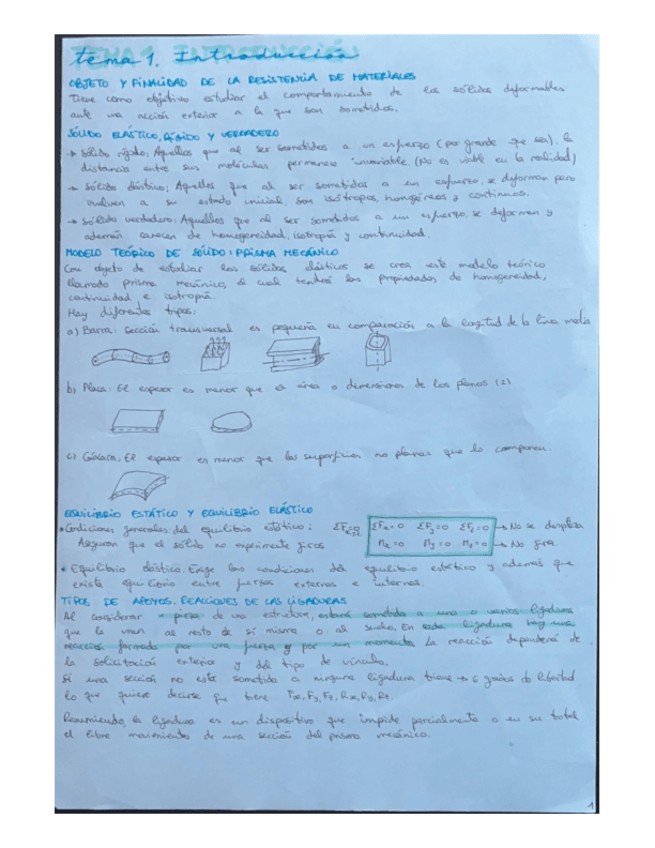 tema 1. Introducción
OBJETO Y FINALIDAD DE LA RESISTENCIA DE MATERIALES
Tiene como objetivo estudiar el comportamiento de los sólidos deformables
ante una acción exterior a la que son sometidos.
SÓLIDO ELÁSTICO, RÍGIDO Y VERDADERO
→ Sólido rígido: Aquellos que al ser sometidos a un esfuerzo (por grande que sea), la
distancia entre sus moléculas permanece invariable. (No es viable en la realidad)
→ Sólido elástico: Aquellos que al ser sometidos a un esfuerzo, se deforman pero
vuelven a su estado inicial, son isótropos, homogéneos y continuos.
→ Sólido verdadero: Aquellos que al ser sometidos a un esfuerzo, se deforman y
además carecen de homogeneidad, isotropía y continuidad.
MODELO TEÓRICO DE SÓLIDO: PRISMA MECÁNICO
Con objeto de estudiar los sólidos elásticos se crea este modelo teórico
llamado prisma mecánico, el cual tendrá las propiedades de homogeneidad,
continuidad e isotropía.
Hay diferentes tipos:
a) Barra: Sección transversal es pequeña en comparación a la longitud de la línea media
b) Placa: El espesor es menor que el área o dimensiones de los planos (2)
c) Cáscara: El espesor es menor que las superficies no planas que lo componen.
EQUILIBRIO ESTÁTICO Y EQUILIBRIO ELÁSTICO
• Condiciones generales del equilibrio estático: ΣFx=0 ΣFy=0 ΣFz=0 → No se desplaza
Aseguran que el sólido no experimente giros Mx=0 My=0 Mz=0 → No gira.
• Equilibrio elástico. Exige las condiciones del equilibrio estático y además que
exista equilibrio entre fuerzas externas e internas.
TIPOS DE APOYOS. REACCIONES DE LAS LIGADURAS
Al considerar pieza de una estructura, estará sometida a una o varias ligaduras
que la unan al resto de sí misma o al suelo. En cada ligadura hay una
reacción formada por una fuerza y por un momento. La reacción dependerá de
la solicitación exterior y del tipo de vínculo.
Si una sección no está sometida a ninguna ligadura tiene → 6 grados de libertad
lo que quiere decirse que tiene Fx, Fy, Fz, Rx, Ry, Rz.
Resumiendo, la ligadura es un dispositivo que impide parcialmente o en su total
el libre movimiento de una sección del prisma mecánico.
1